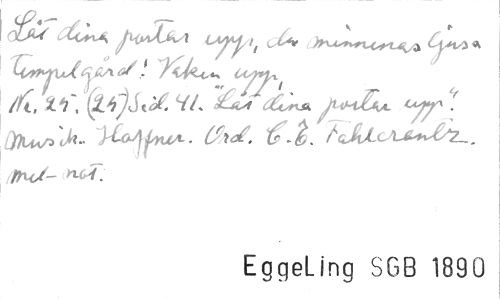 Låt dina portar upp, du minnenas ljusa
tempelgård! Vaken upp,
Nr. 25. (25) Sid. 41. "Låt dina portar upp".
Musik. Haffner. Ord. C. E. Fahlcrantz.
mel-not.
EggeLing SGB 1890